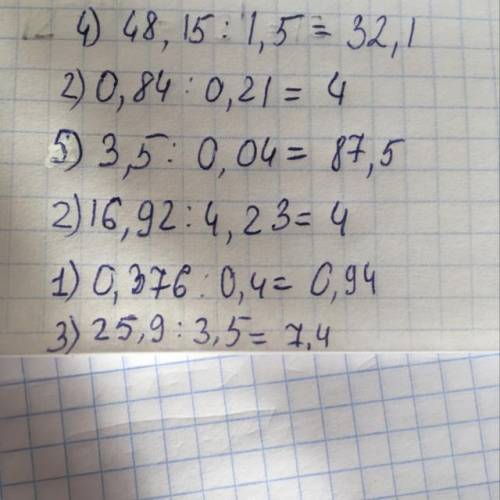 4) 48,15 : 1,5 = 32,1
2) 0,84 : 0,21 = 4
5) 3,5 : 0,04 = 87,5
2) 16,92 : 4,23 = 4
1) 0,376 : 0,4 = 0,94
3) 25,9 : 3,5 = 7,4